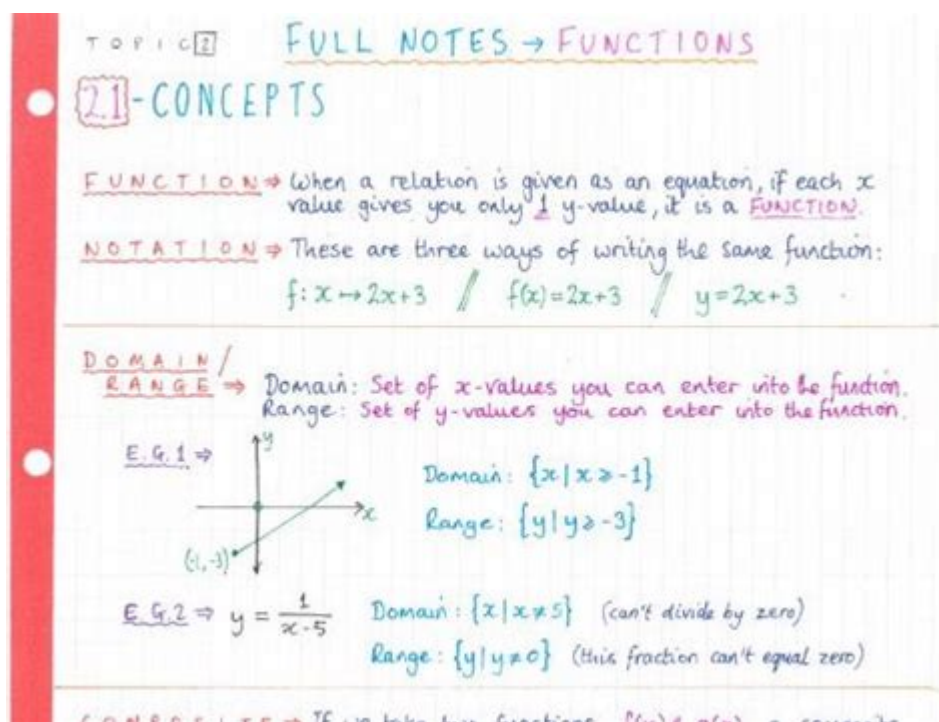 TOPIC 2 FULL NOTES → FUNCTIONS
2.1 - CONCEPTS
FUNCTION ⇒ When a relation is given as an equation, if each x
value gives you only 1 y-value, it is a FUNCTION.
NOTATION ⇒ These are three ways of writing the same function:
f: x ↦ 2x+3 // f(x)=2x+3 // y=2x+3
DOMAIN/
RANGE ⇒ Domain: Set of x-values you can enter into the function.
Range: Set of y-values you can enter into the function.
E.G.1 ⇒ y
Domain: {x | x ≥ -1}
x
Range: {y | y ≥ -3}
(-1, -3)
E.G.2 ⇒ y = 1/(x-5) Domain: {x | x ≠ 5} (can't divide by zero)
Range: {y | y ≠ 0} (this fraction can't equal zero)
⇒ If we take two functions, f(x) & g(x), a composite